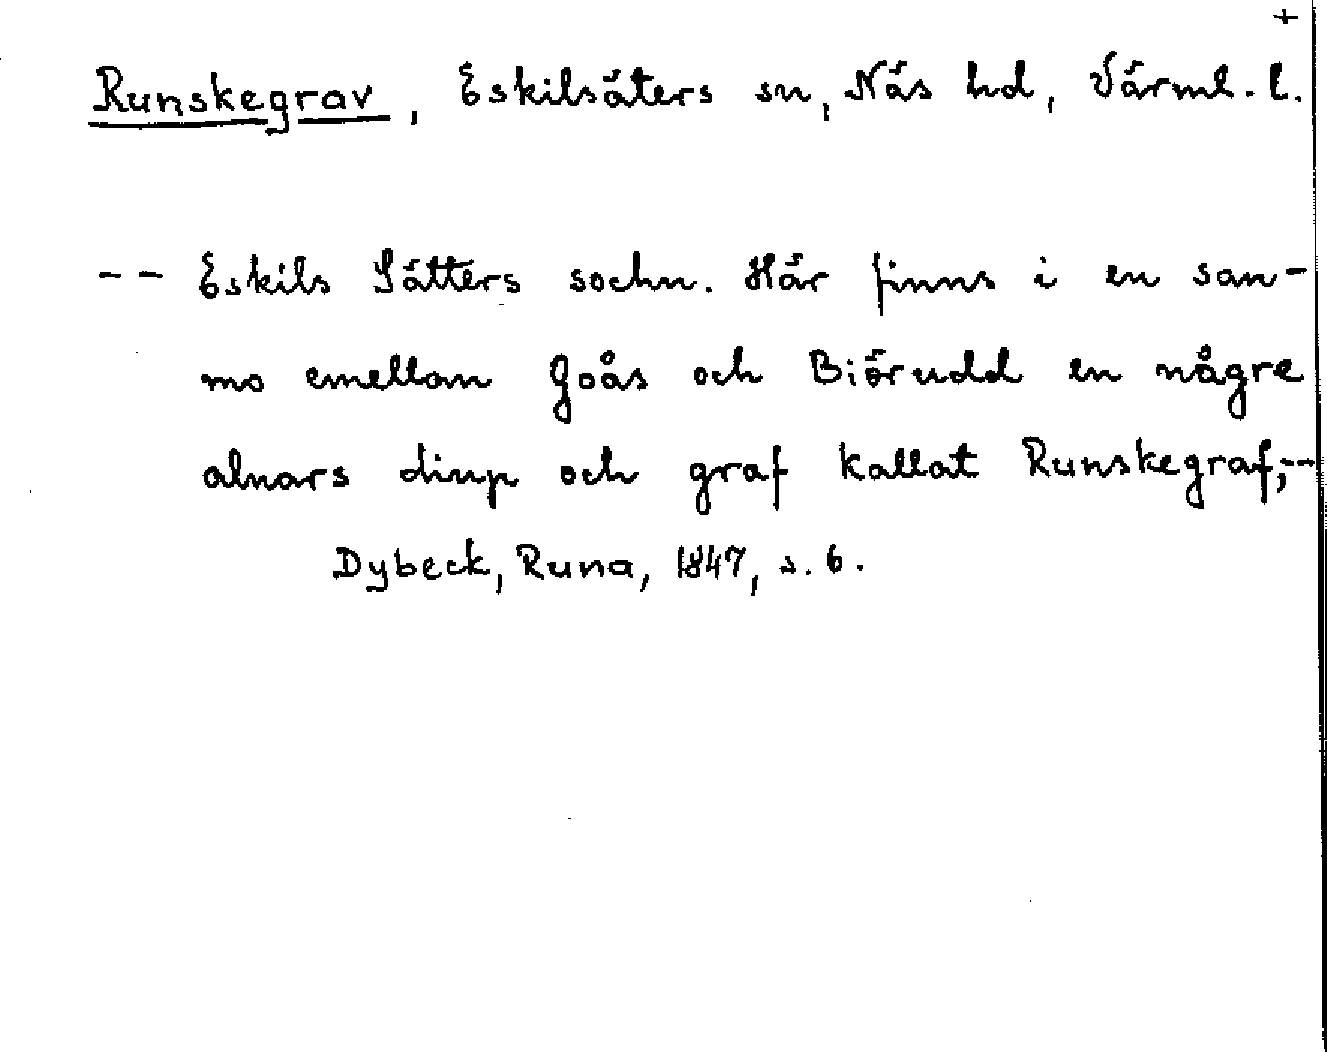 +
Runskegrav, Eskilsäters sn, Näs hd, Värml. l.
-- Eskils Sätters sochn. Här finns i en san-
mo emellan Goås och Biörudd en någre
alnars diup och graf kallat Runskegraf,--
Dybeck, Runa, 1847, s. 6.